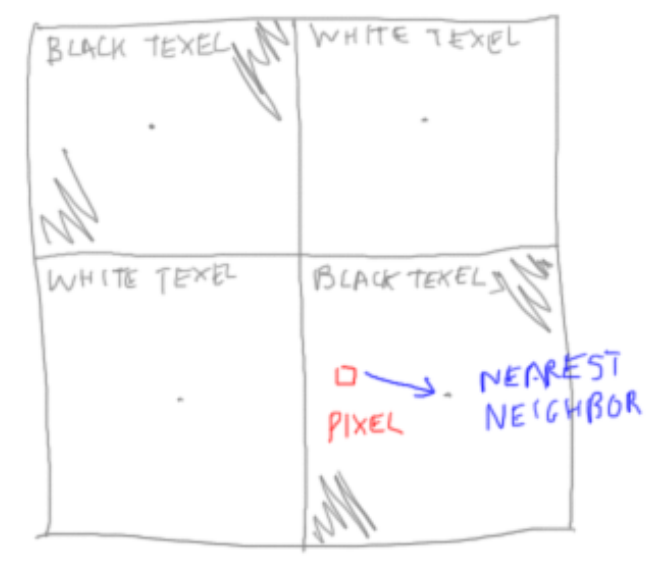 BLACK TEXEL
WHITE TEXEL
WHITE TEXEL
BLACK TEXEL
PIXEL
NEAREST
NEIGHBOR